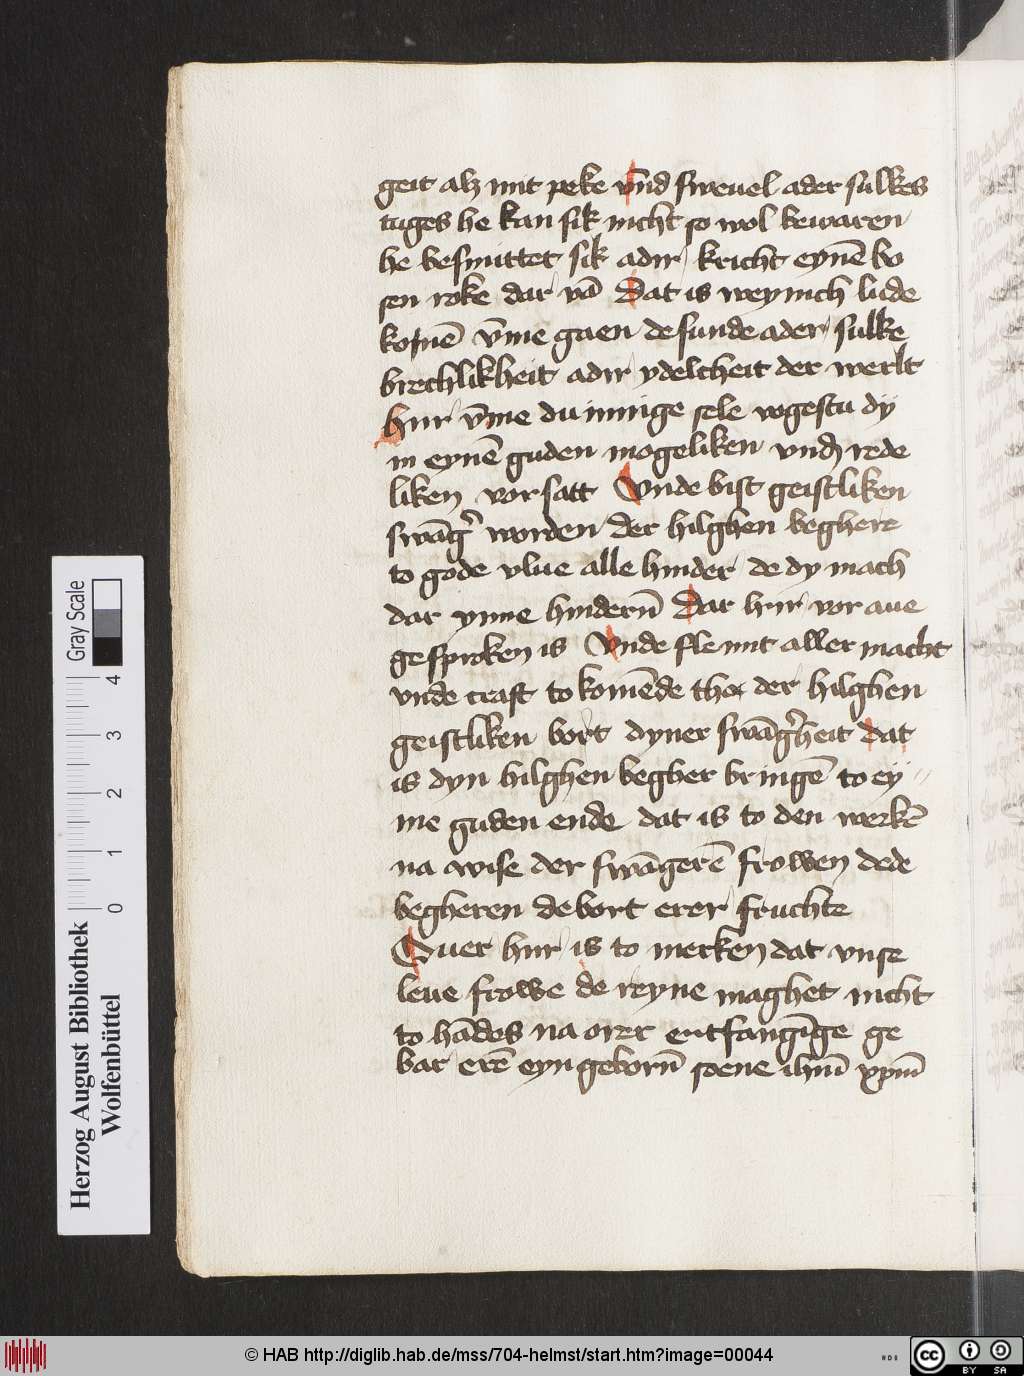 geit alz mit peke vnd sweuel ader sulkes
tuges he kan sik nicht so wol bewaren
he besmittet sik adir kricht eynē bo
sen roke dar vā Dat is weynich lude
komē vm̄e gaen de sunde ader sulke
brechlikheit adir ydelcheit der werlt
Hir vm̄e du innige sele vogestu dy
in eynē guden mogeliken vnd rede
liken vorsatt Vnde bist geistliken
swāg' worden der hilghen beghere
to gode vlue alle hinder de dy mach
dar ynne hindern̄ Dar hir vor aue
gesproken is Vnde fle mit aller macht
vnde craft to komēde tho der hilghen
geistliken bort dyner swāg'heit dat
is dyn hilghen begher bringē to ey"
me guden ende dat is to den werkē
na wise der swāgerē frowen dede
begheren de bort erer fruchte
Ouer hir is to merken dat vnse
leue frowe de reyne maghet nicht
to hādes na orer entfangīge ge
bar erē eyn geborn̄ soene ihm̄ xpm̄
Herzog August Bibliothek
Wolfenbüttel
0 1 2 3 4
Gray Scale
© HAB http://diglib.hab.de/mss/704-helmst/start.htm?image=00044
HAB
cc BY SA